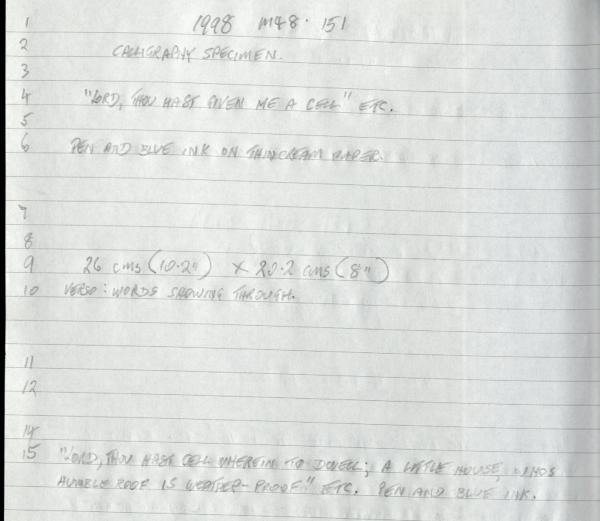 1 1998 M48.151
2 CALLIGRAPHY SPECIMEN.
3
4 "LORD, THOU HAST GIVEN ME A CELL" ETC.
5
6 PEN AND BLUE INK ON THIN CREAM PAPER.
7
8
9 26 cms (10.2") x 20.2 cms (8")
10 VERSO: WORDS SHOWING THROUGH.
11
12
14
15 "LORD, THOU HAST CELL WHEREIN TO DWELL; A LITTLE HOUSE, WHOS
HUMBLE ROOF IS WEATHER-PROOF" ETC. PEN AND BLUE INK.